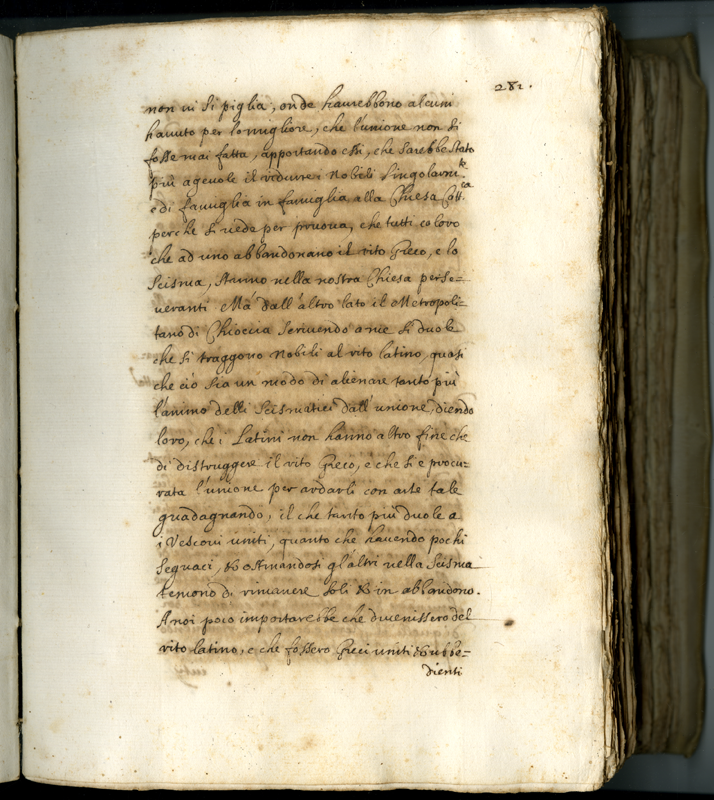 282.
non vi si piglia, onde haurebbono alcuni
hauuto per lo migliore, che l'unione non si
fosse mai fatta, apportando essi, che sarebbe stato
più ageuole il ridurre i nobili singolarm.te
e di famiglia in famiglia alla Chiesa Catt.ca
perche si vede per pruoua, che tutti coloro
che ad uno abbandonano il rito Greco, e lo
scisma, stanno nella nostra Chiesa perse=
ueranti Mà dall'altro lato il Metropoli=
tano di Chiouia scriuendo a me si duole
che si traggono nobili al rito latino, quasi
che ciò sia un modo di alienare tanto più
l'animo delli scismatici dall'unione, dicendo
loro, che i Latini non hanno altro fine che
di distruggere il rito Greco, e che si è procu=
rata l'unione per andarli con arte tale
guadagnando, il che tanto più duole a
i Vescoui uniti, quanto che hauendo pochi
seguaci, et ostinandosi gl'altri nella scisma
temono di rimanere soli et in abbandono.
A noi poco importarebbe che diuenissero del
rito latino, e che fossero Greci uniti et ubbe=
dienti